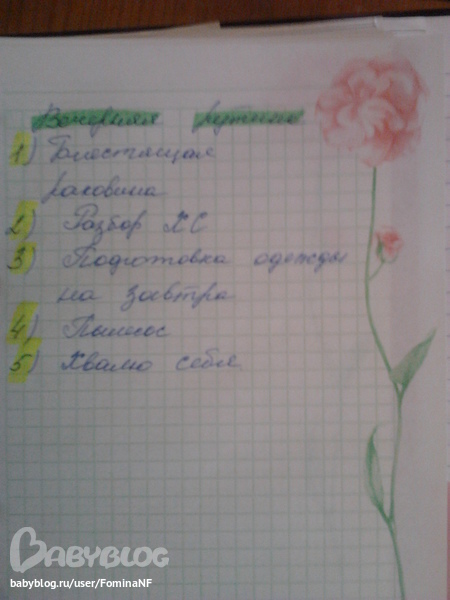 Вечерняя рутина
1) Блестящая
раковина
2) Разбор ХС
3) Подготовка одежды
на завтра
4) Пылесос
5) Хвалю себя
BABYBLOG
babyblog.ru/user/FominaNF